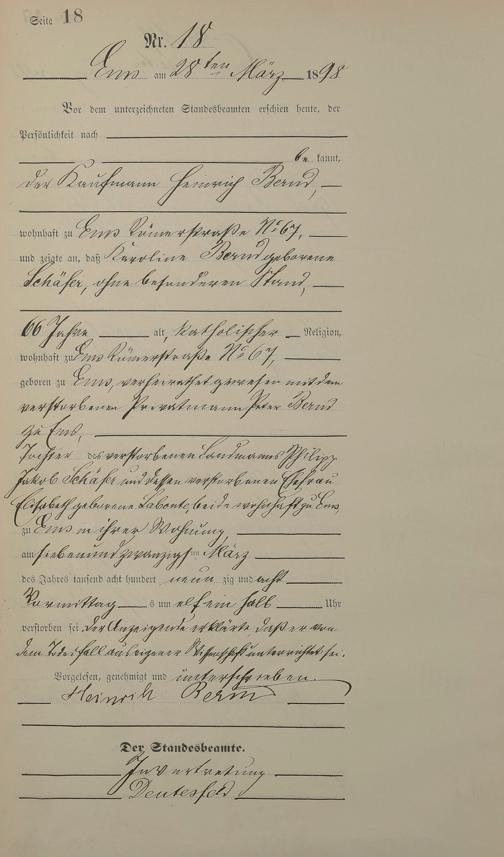 Seite 18
Nr. 18
Ems am 28ten März 1898
Vor dem unterzeichneten Standesbeamten erschien heute, der
Persönlichkeit nach
be kannt,
der Kaufmann Heinrich Bernd,
wohnhaft zu Ems Römerstraße No 67,
und zeigte an, daß Karoline Bernd geborene
Schäfer, ohne besonderen Stand,
66 Jahre alt, katholischer Religion,
wohnhaft zu Ems Römerstraße No 67,
geboren zu Ems, verheirathet gewesen mit dem
verstorbenen Privatmann Peter Bernd
zu Ems,
Tochter des verstorbenen Landmanns Philipp
Jakob Schäfer und dessen verstorbenen Ehefrau
Elisabeth geborene Labonte, beide wohnhaft zu Ems
zu Ems in ihrer Wohnung
am siebenundzwanzigsten März
des Jahres tausend acht hundert neun zig und acht
Vormittag s um elf ein halb Uhr
verstorben sei. Der Anzeigende erklärte, daß er von
dem Todesfall aus eigener Wissenschaft unterrichtet sei.
Vorgelesen, genehmigt und unterschrieben.
Heinrich Bernd
Der Standesbeamte.
In Vertretung